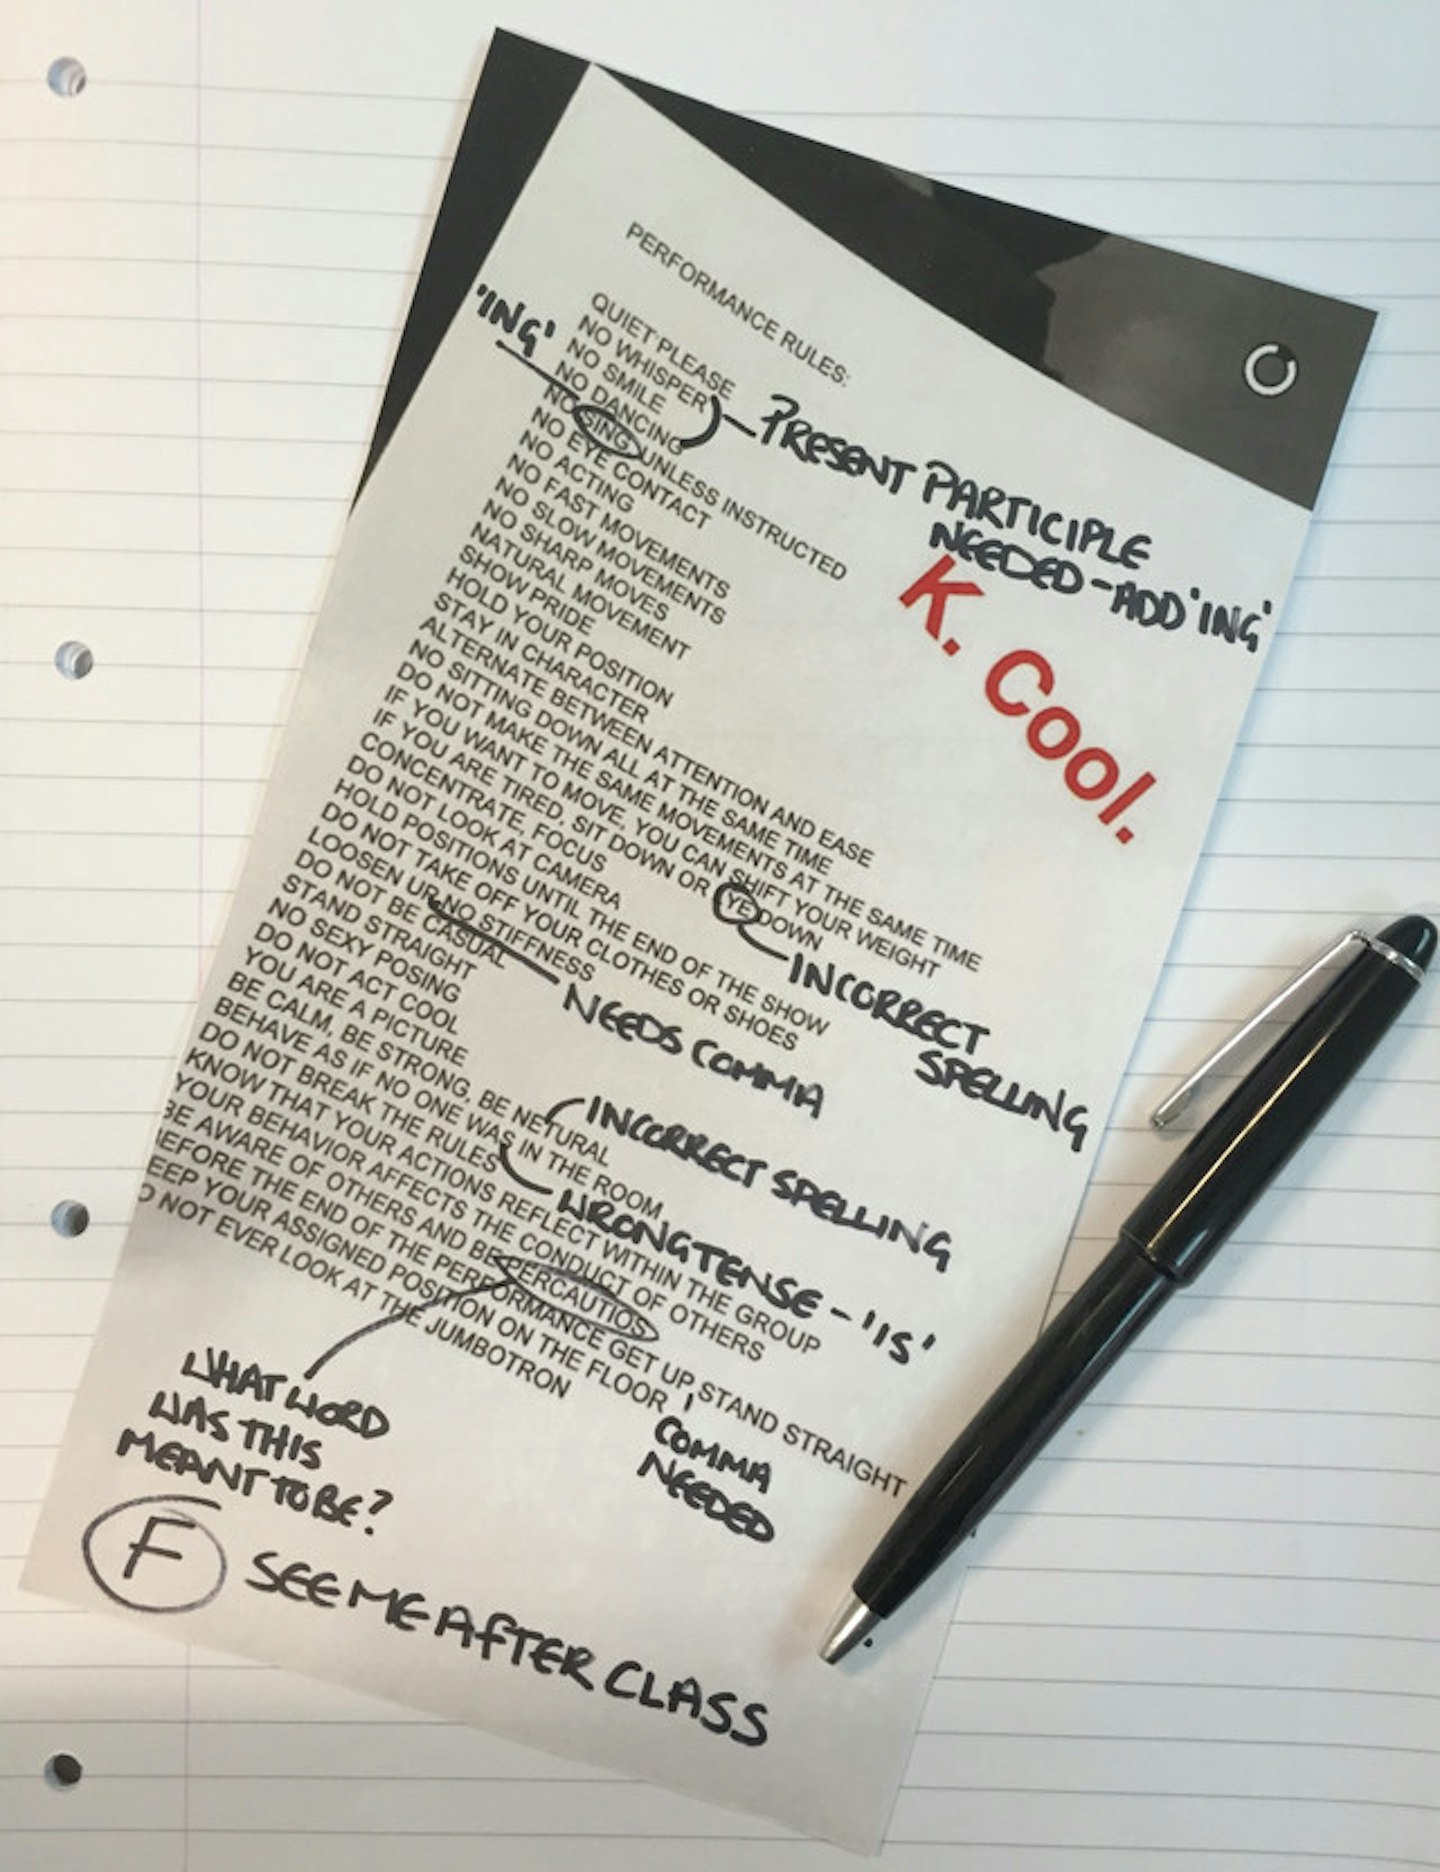 PERFORMANCE RULES:
QUIET PLEASE
NO WHISPER
NO SMILE
NO DANCING
NO SING UNLESS INSTRUCTED
NO EYE CONTACT
NO ACTING
NO FAST MOVEMENTS
NO SLOW MOVEMENTS
NO SHARP MOVES
NATURAL MOVEMENT
SHOW PRIDE
HOLD YOUR POSITION
STAY IN CHARACTER
ALTERNATE BETWEEN ATTENTION AND EASE
NO SITTING DOWN ALL AT THE SAME TIME
DO NOT MAKE THE SAME MOVEMENTS AT THE SAME TIME
IF YOU WANT TO MOVE, YOU CAN SHIFT YOUR WEIGHT
IF YOU ARE TIRED, SIT DOWN OR YE DOWN
CONCENTRATE, FOCUS
DO NOT LOOK AT CAMERA
HOLD POSITIONS UNTIL THE END OF THE SHOW
DO NOT TAKE OFF YOUR CLOTHES OR SHOES
LOOSEN UP NO STIFFNESS
DO NOT BE CASUAL
STAND STRAIGHT
NO SEXY POSING
DO NOT ACT COOL
YOU ARE A PICTURE
BE CALM, BE STRONG, BE NETURAL
BEHAVE AS IF NO ONE WAS IN THE ROOM
DO NOT BREAK THE RULES
KNOW THAT YOUR ACTIONS REFLECT WITHIN THE GROUP
YOUR BEHAVIOR AFFECTS THE CONDUCT OF OTHERS
BE AWARE OF OTHERS AND BE PERCAUTIOS
EFORE THE END OF THE PERFORMANCE GET UP, STAND STRAIGHT
EEP YOUR ASSIGNED POSITION ON THE FLOOR
O NOT EVER LOOK AT THE JUMBOTRON
'ING'
PRESENT PARTICIPLE
NEEDED - ADD 'ING'
K. Cool.
INCORRECT
SPELLING
NEEDS COMMA
INCORRECT SPELLING
WRONG TENSE - 'IS'
WHAT WORD
WAS THIS
MEANT TO BE?
COMMA
NEEDED
F SEE ME AFTER CLASS